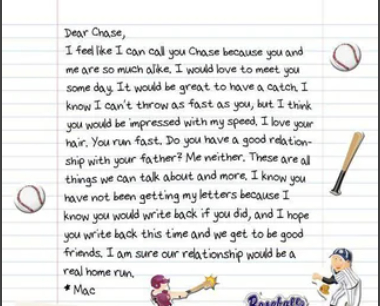 Dear Chase,
I feel like I can call you Chase because you and
me are so much alike. I would love to meet you
some day. It would be great to have a catch. I
know I can't throw as fast as you, but I think
you would be impressed with my speed. I love your
hair. You run fast. Do you have a good relation-
ship with your father? Me neither. These are all
things we can talk about and more. I know you
have not been getting my letters because I
know you would write back if you did, and I hope
you write back this time and we get to be good
friends. I am sure our relationship would be a
real home run.
* Mac
Baseball